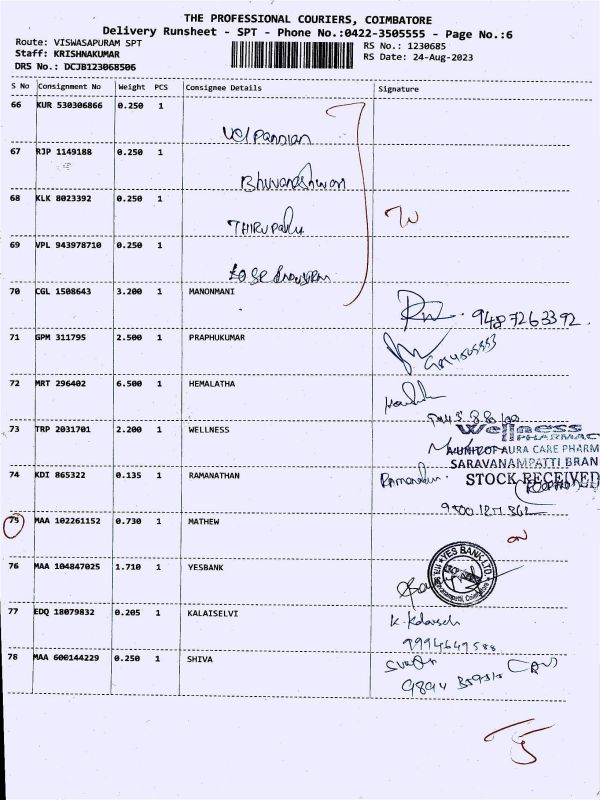 THE PROFESSIONAL COURIERS, COIMBATORE
Delivery Runsheet - SPT - Phone No.:0422-3505555 - Page No.:6
Route: VISWASAPURAM SPT
RS No.: 1230685
Staff: KRISHNAKUMAR
RS Date: 24-Aug-2023
DRS No.: DCJB123068506
S No Consignment No Weight PCS Consignee Details Signature
66 KUR 530306866 0.250 1
67 RJP 1149188 0.250 1
Bhuvaneshwari
68 KLK 8023392 0.250 1
69 VPL 943978710 0.250 1
70 CGL 1508643 3.200 1 MANONMANI
9487263392
71 GPM 311795 2.500 1 PRAPHUKUMAR
72 MRT 296402 6.500 1 HEMALATHA
73 TRP 2031701 2.200 1 WELLNESS
Wellness
PHARMAC
A UNIT OF AURA CARE PHARM
SARAVANAMPATTI BRAN
74 KDI 865322 0.135 1 RAMANATHAN
STOCK RECEIVED
75 MAA 102261152 0.730 1 MATHEW
ON
76 MAA 104847025 1.710 1 YESBANK
YES BANK LTD
77 EDQ 18079832 0.205 1 KALAISELVI
9994649588
78 MAA 600144229 0.250 1 SHIVA